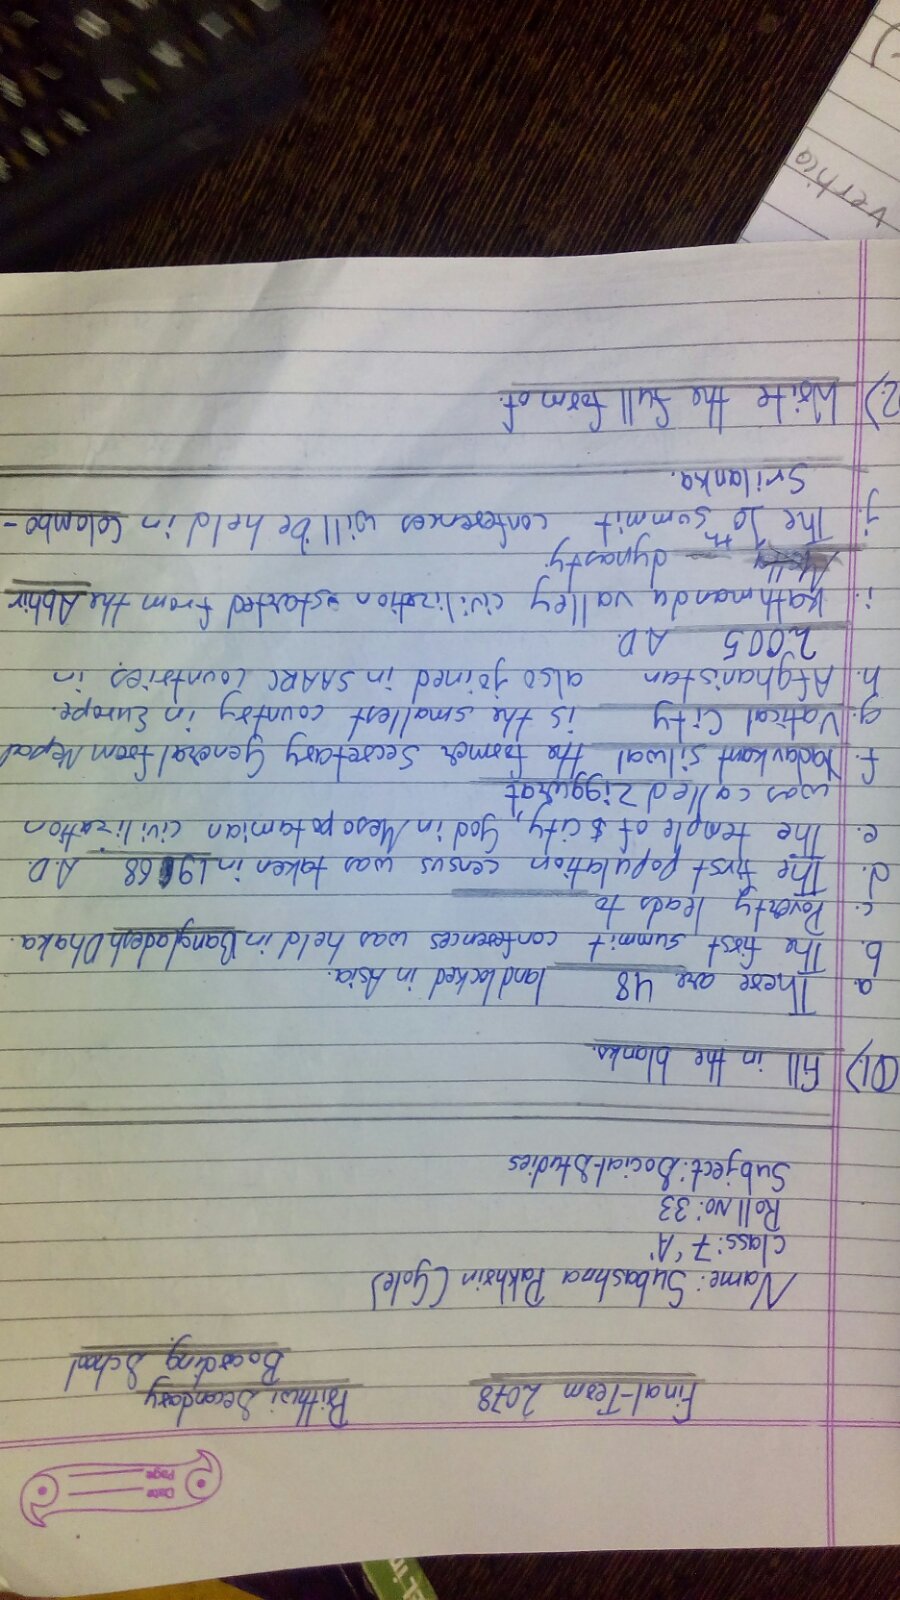 Date
Page
Final-Term 2078 Prithivi Secondary
Boarding School
Name: Subashna Pakhrin (Gole)
Class: 7 'A'
Roll No: 33
Subject: Social Studies
01.) Fill in the blanks.
a. There are 48 landlocked in Asia.
b. The first summit conferences was held in Bangladesh Dhaka.
c. Poverty leads to
d. The first population census was taken in 1968 A.D.
e. The temple of city, God in Mesopotamian civilization
was called ziggurat
f. Yadavkant silwal the former Secretary General from Nepal
g. Vatical City is the smallest country in Europe.
h. Afghanistan also joined in SAARC countries in
2005 A.D
i. Kathmandu valley civilization started from the Abhir
dynasty.
j. The 10th summit conferences will be held in Colambo-
Srilanka.
2.) Write the full form of.
vertica